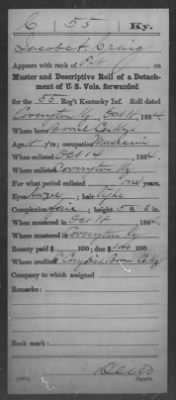 C 55 Ky.
Jacob A. Craig
Appears with rank of Pvt
Muster and Descriptive Roll of a Detachment of U. S. Vols. forwarded
for the 55 Reg't Kentucky Inf. Roll dated
Covington Ky Oct 18, 1864.
Where born Boone Co Ky
Age y'rs; occupation
When enlisted Oct 14, 1864.
Where enlisted Covington Ky
For what period enlisted One years.
Eyes Hazel; hair Light
Complexion; height 5 ft. in.
When mustered in Oct 18, 1864.
Where mustered in Covington Ky
Bounty paid $ 100; due $ 100
Where credited Boone Co Ky
Company to which assigned
Remarks:
Book mark:
Copyist.